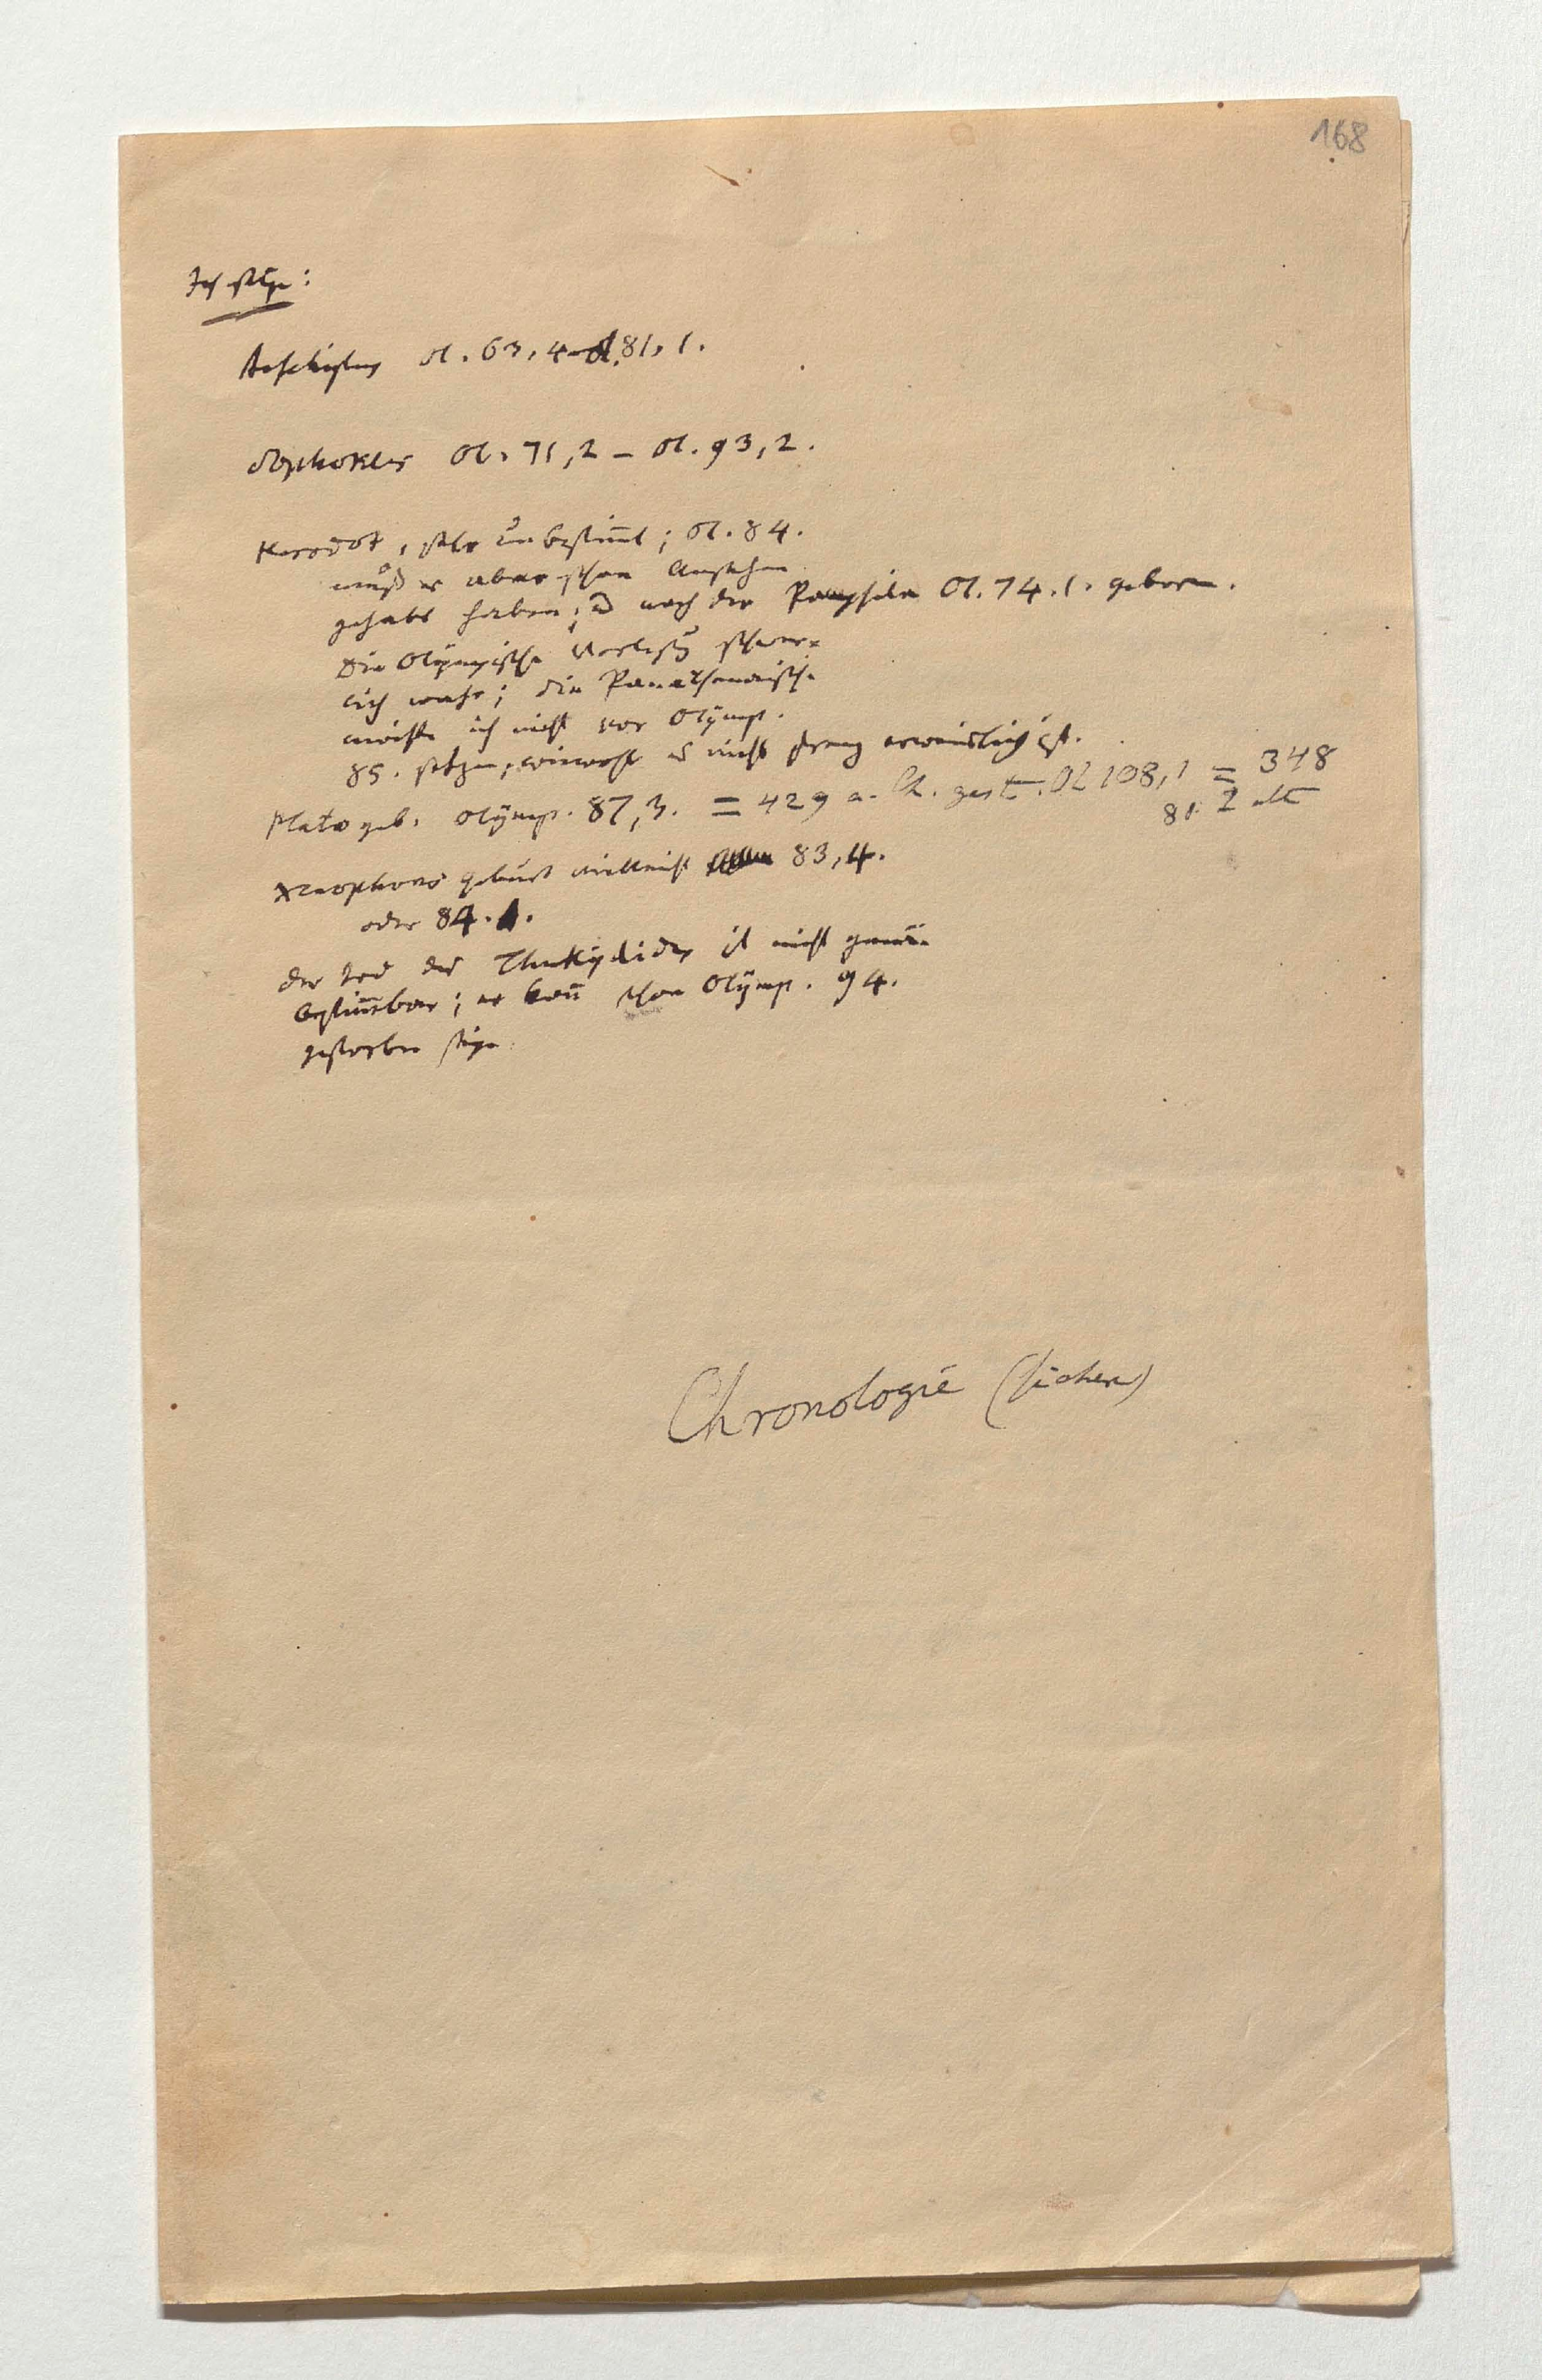 168
Ich setze:
Aeschylus Ol. 63,4 - Ol. 81,1.
Sophokles Ol. 71,2 – Ol. 93,2.
Herodot, sehr unbestimt; Ol. 84.
muß er aber schon Ansehen
gehabt haben; u nach der Pamphila Ol. 74.1. geboren.
Die Olympische Vorlesung schwer-
lich wahr; die Panathenaische
möchte ich nicht vor Olymp.
85. setzen, wiewohl es nicht streng erweislich ist.
Plato geb. Olymp. 87,3. = 429 a. Ch. gest. Ol 108,1 = 348
81 J alt
Xenophons Geburt vielleicht 83,4.
oder 84.1.
der Tod des Thukydides ist nicht genau
bestimbar; er kañ schon Olymp. 94.
gestorben seyn.
Chronologie (sicher)